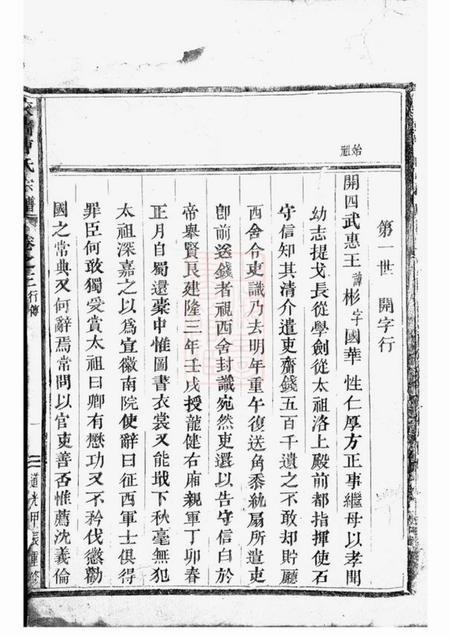 始祖
第一世 開字行
開四武惠王諱彬字國華 性仁厚方正事繼母以孝聞
幼志提戈長從學劍從太祖洛上殿前都指揮使石
守信知其清介遣吏齎錢五百千遺之不敢却貯廳
西舍令吏識乃去明年重午復送角黍紈扇所遣吏
卽前送錢者視西舍封識宛然吏還以告守信白於
帝舉賢艮建隆三年壬戌授龍健右廂親軍丁卯春
正月自蜀還槖中惟圖書衣裳又能戢下秋毫無犯
太祖深嘉之以爲宣徽南院使辭曰征西軍士俱得
罪臣何敢獨受賞太祖曰卿有懋功又不矜伐懲勸
國之常典又何辭焉常問以官吏善否惟薦沈義倫
氏宗譜 卷之二 行傳
一
道光甲辰重修